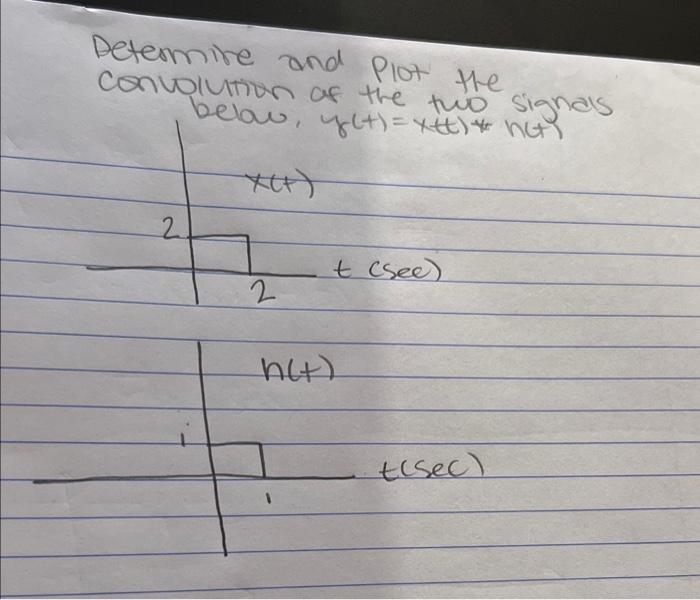 Determine and Plot the
convolution of the two signals
below, y(t) = x(t) * h(t)
x(t)
2
t (sec)
2
h(t)
1
t(sec)
1